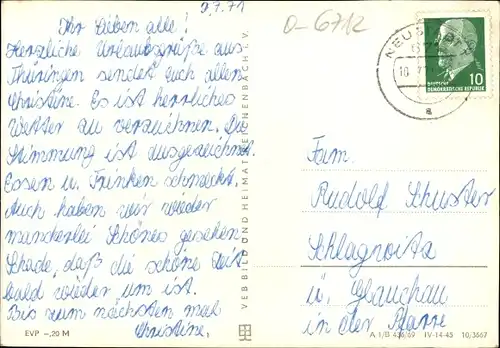 9.7.71
Ihr Lieben alle!
Herzliche Urlaubsgrüße aus
Thüringen sendet Euch allen
Christine. Es ist herrliches
Wetter zu verzeichnen. Die
Stimmung ist ausgezeichnet.
Essen u. Trinken schmeckt.
Auch haben wir wieder
mancherlei Schönes gesehen.
Schade, daß die schöne Zeit
bald wieder um ist.
Bis zum nächsten mal
Christine.
EVP –,20 M
VEB BILD UND HEIMAT REICHENBACH I. V.
O-6712
NEUSTADT
10
DEUTSCHE
DEMOKRATISCHE REPUBLIK
a
Fam.
Rudolf Schuster
Schlagwitz
ü. Glauchau
in der Pfarre
A 1/B 436/69 IV-14-45 10/3567